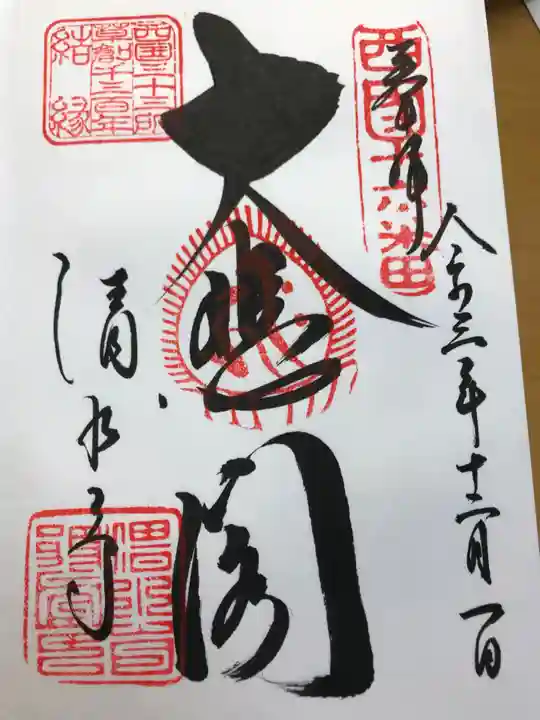 奉拝
令和三年十二月一日
西国十六番
大悲閣
清水寺
西国三十三所
草創千三百年
結縁